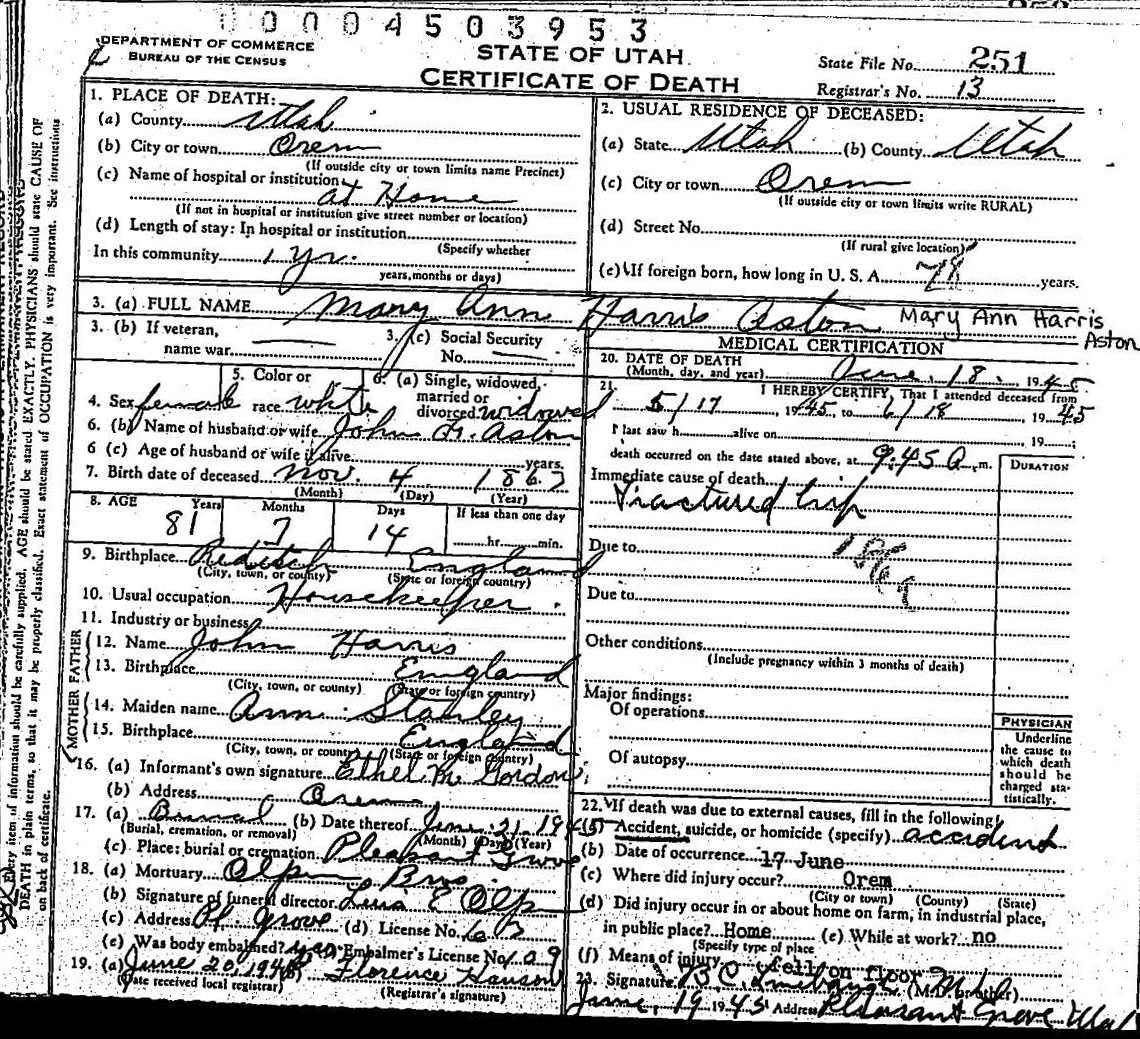 00004503953
DEPARTMENT OF COMMERCE
BUREAU OF THE CENSUS
STATE OF UTAH
CERTIFICATE OF DEATH
State File No. 251
Registrar's No. 13
1. PLACE OF DEATH:
(a) County Utah
(b) City or town Orem
(If outside city or town limits name Precinct)
(c) Name of hospital or institution
at Home
(If not in hospital or institution give street number or location)
(d) Length of stay: In hospital or institution
(Specify whether
In this community 1 yr.
years, months or days)
2. USUAL RESIDENCE OF DECEASED:
(a) State Utah (b) County Utah
(c) City or town Orem
(If outside city or town limits write RURAL)
(d) Street No.
(If rural give location)
(e) If foreign born, how long in U. S. A. 78 years.
3. (a) FULL NAME Mary Ann Harris Aston Mary Ann Harris Aston
3. (b) If veteran,
name war
3. (c) Social Security
No.
4. Sex female
5. Color or
race white
6. (a) Single, widowed,
married or
divorced widowed
6. (b) Name of husband or wife John H. Aston
6 (c) Age of husband or wife if alive years.
7. Birth date of deceased Nov. 4 1863
(Month) (Day) (Year)
8. AGE Years Months Days If less than one day
81 7 14 hr. min.
9. Birthplace Reditch England
(City, town, or county) (State or foreign country)
10. Usual occupation Housekeeper
11. Industry or business
FATHER
12. Name John Harris
13. Birthplace England
(City, town, or county) (State or foreign country)
MOTHER
14. Maiden name Ann Stanley
15. Birthplace England
(City, town, or county) (State or foreign country)
16. (a) Informant's own signature Ethel M. Gordon
(b) Address Orem
17. (a) Burial (b) Date thereof June 21, 1945
(Burial, cremation, or removal) (Month) (Day) (Year)
(c) Place: burial or cremation Pleasant Grove
18. (a) Mortuary Olpin Bros.
(b) Signature of funeral director E Olpin
(c) Address Pl. Grove (d) License No.
(e) Was body embalmed? yes Embalmer's License No. 109
19. (a) June 20, 1945 Florence Hanson
(Date received local registrar) (Registrar's signature)
MEDICAL CERTIFICATION
20. DATE OF DEATH
(Month, day, and year) June. 18. 1945
21. I HEREBY CERTIFY, That I attended deceased from
5/17, 1945 to 6/18, 1945
I last saw h alive on , 19 ;
death occurred on the date stated above, at 9:45 a. m.
DURATION
Immediate cause of death
Fractured hip
Due to
186a
Due to
Other conditions
(Include pregnancy within 3 months of death)
Major findings:
Of operations
Of autopsy
PHYSICIAN
Underline
the cause to
which death
should be
charged sta-
tistically.
22. If death was due to external causes, fill in the following:
(a) Accident, suicide, or homicide (specify) accident
(b) Date of occurrence 17 June
(c) Where did injury occur? Orem
(City or town) (County) (State)
(d) Did injury occur in or about home on farm, in industrial place,
in public place? Home (e) While at work? no
(Specify type of place
(f) Means of injury fell on floor
23. Signature B C Linebaugh M D (M.D. or other)
June, 19 1945 Address Pleasant Grove Utah
Every item of information should be carefully supplied. AGE should be stated EXACTLY. PHYSICIANS should state CAUSE OF
DEATH in plain terms, so that it may be properly classified. Exact statement of OCCUPATION is very important. See instructions
on back of certificate.